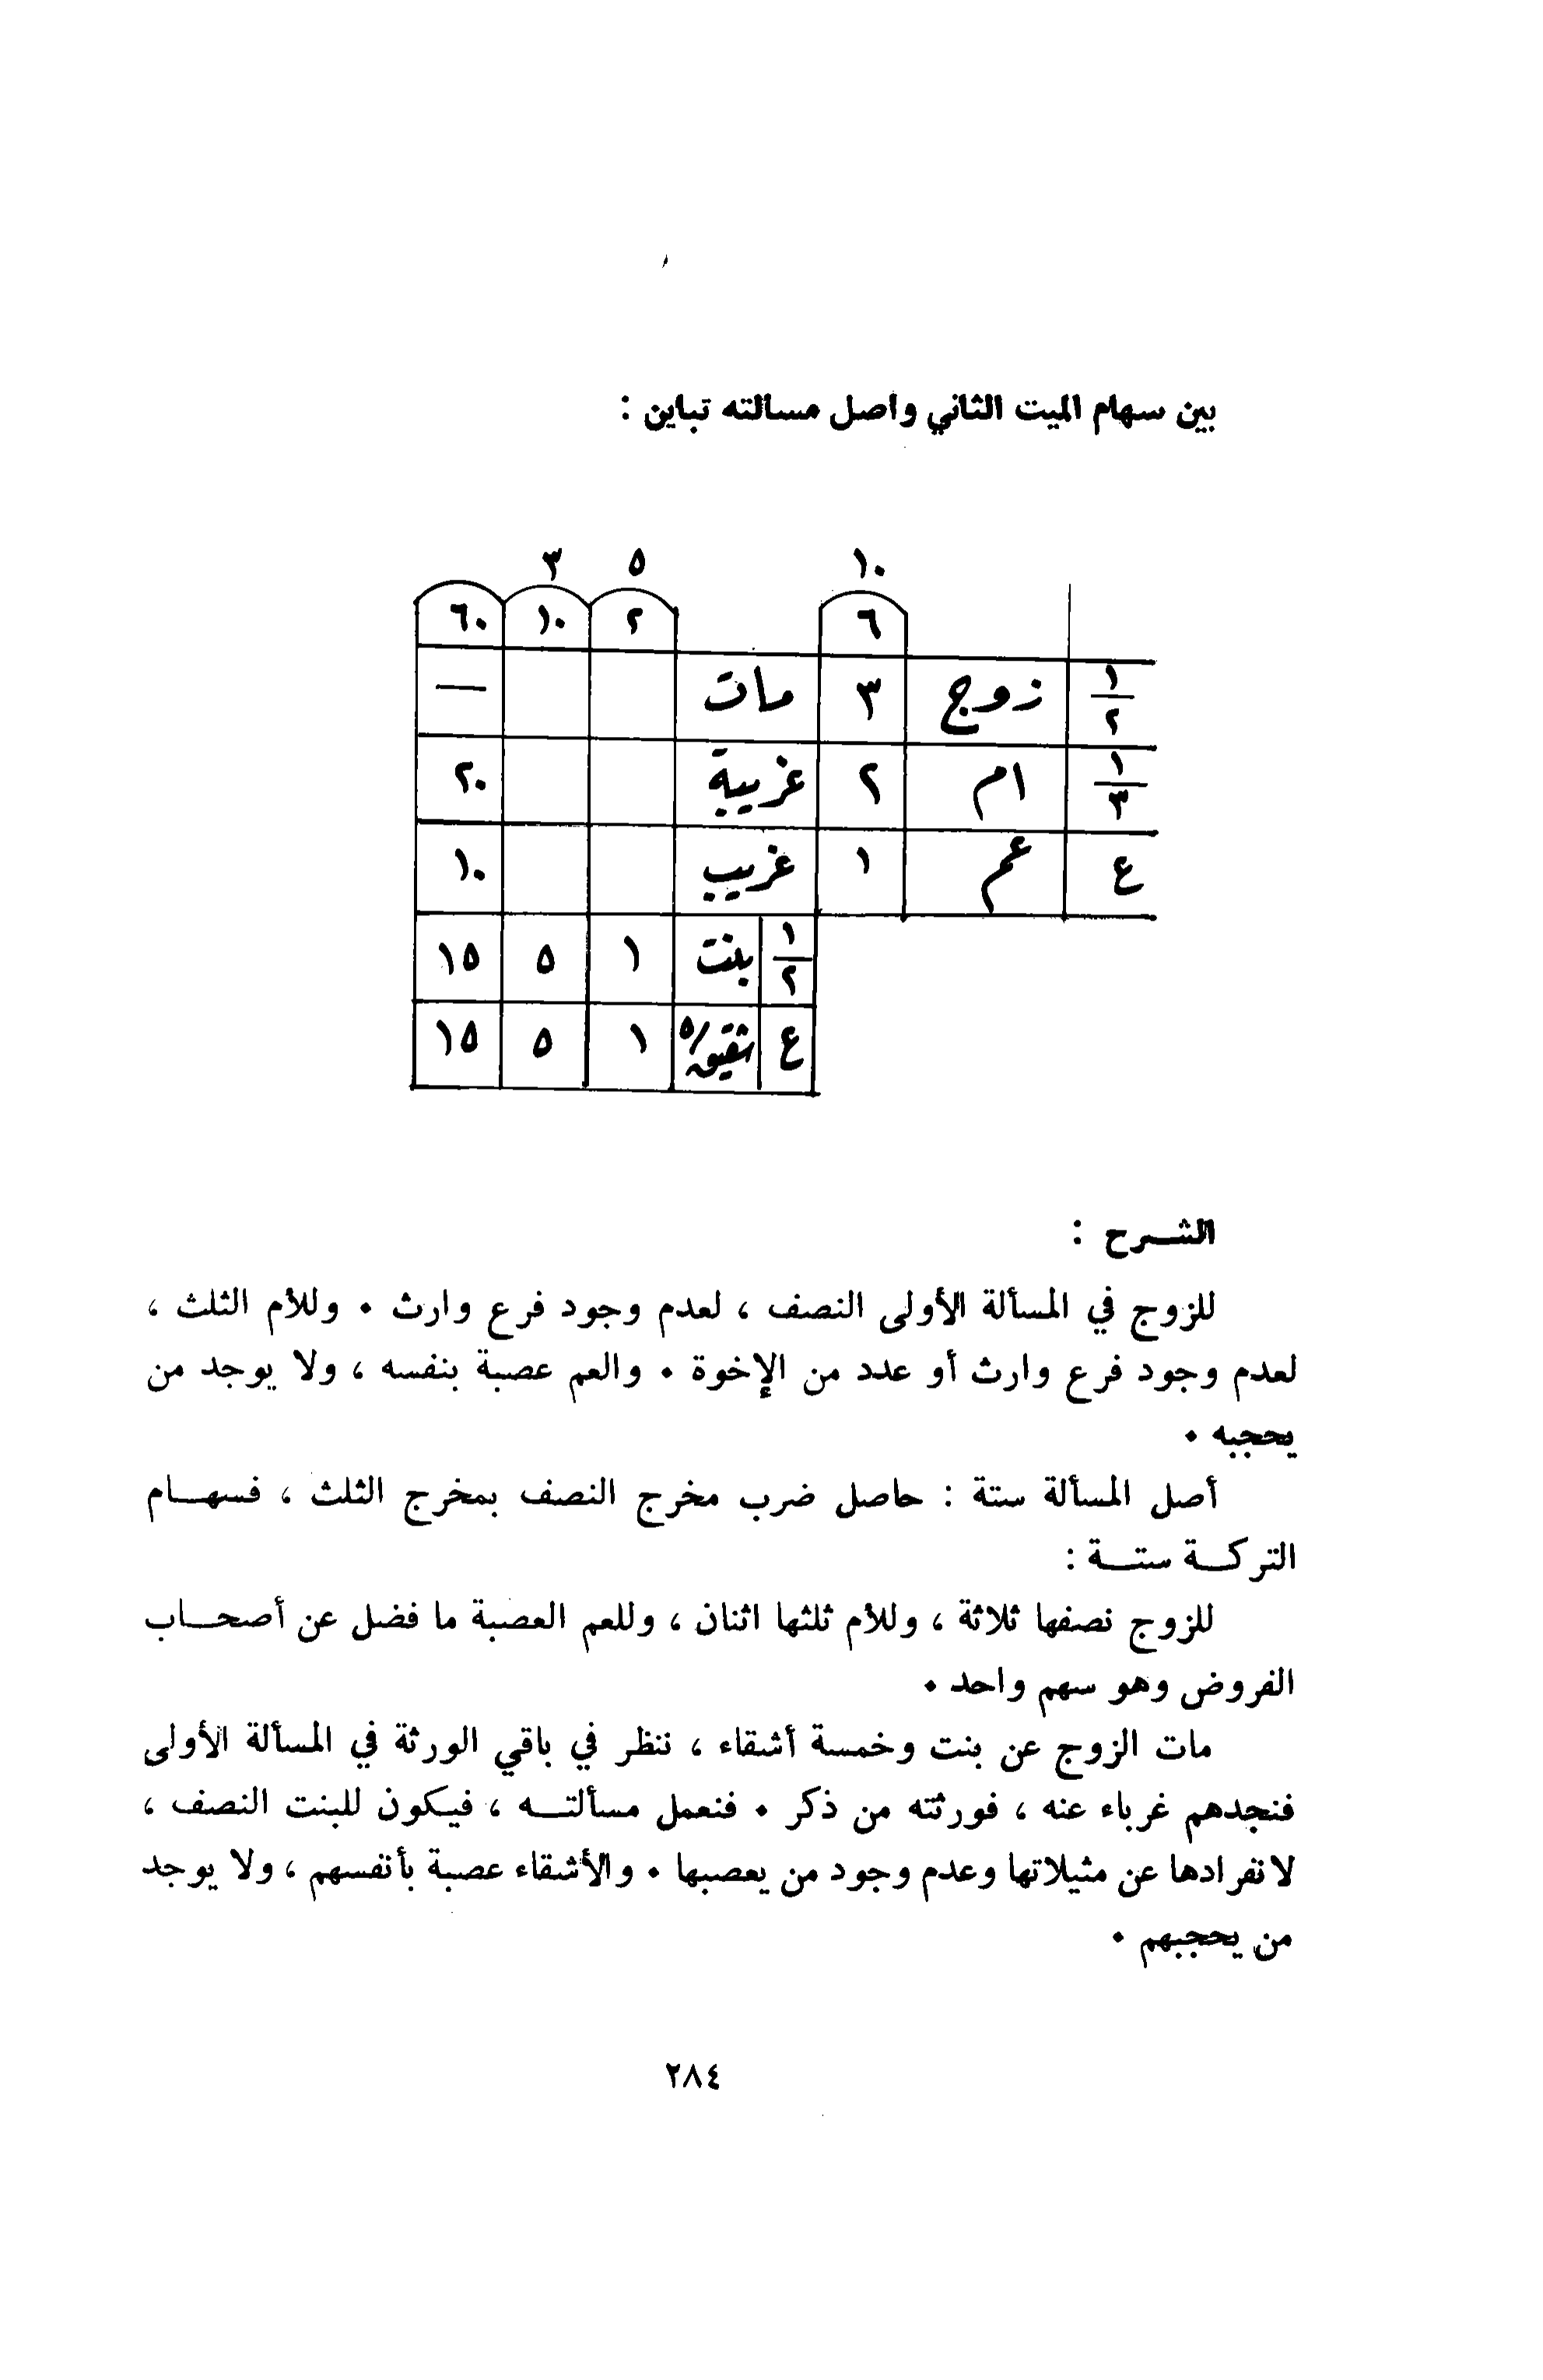 بين سهام الميت الثاني واصل مسالته تباين :
١٠ ٥ ٣
٦ ٢ ١٠ ٦٠
١/٢ زوج ٣ مات —
١/٣ ام ٢ غريبة ٢٠
ع عم ١ غريب ١٠
١/٢ بنت ١ ٥ ١٥
ع شقيق/٥ ١ ٥ ١٥
الشـــرح :
للزوج في المسألة الأولى النصف ، لعدم وجود فرع وارث ٠ وللأم الثلث ،
لعدم وجود فرع وارث أو عدد من الإخوة ٠ والعم عصبة بنفسه ، ولا يوجد من
يحجبه ٠
أصل المسألة ستة : حاصل ضرب مخرج النصف بمخرج الثلث ، فسهـــام
التركــة ستــة :
للزوج نصفها ثلاثة ، وللأم ثلثها اثنان ، وللعم العصبة ما فضل عن أصحــاب
الفروض وهو سهم واحد ٠
مات الزوج عن بنت وخمسة أشقاء ، ننظر في باقي الورثة في المسألة الأولى
فنجدهم غرباء عنه ، فورثته من ذكر ٠ فنعمل مسألتــه ، فيكون للبنت النصف ،
لانفرادها عن مثيلاتها وعدم وجود من يعصبها ٠ والأشقاء عصبة بأنفسهم ، ولا يوجد
من يحجبهم ٠
٢٨٤